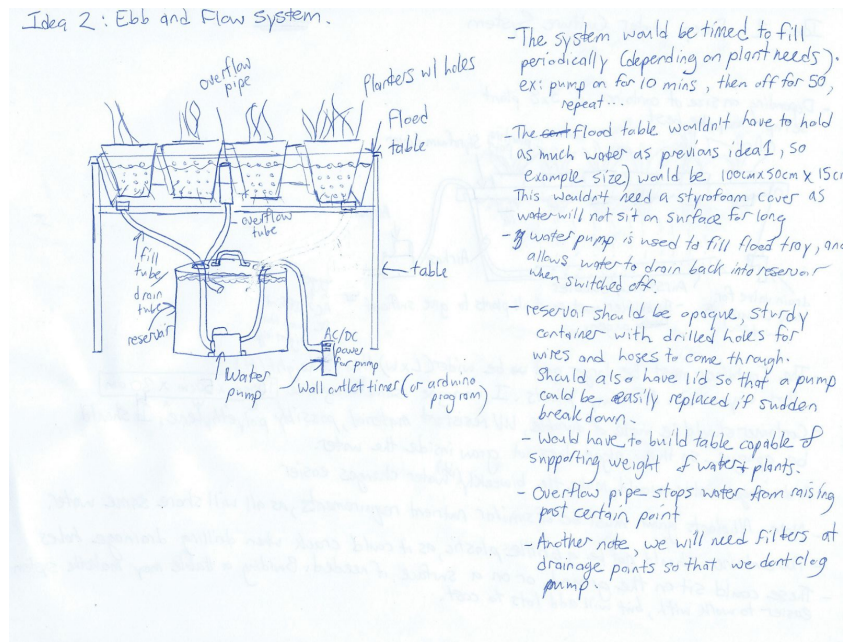 Idea 2: Ebb and Flow System.
overflow
pipe
Planters w/ holes
Flood
table
overflow
tube
fill
tube
drain
tube
reservoir
table
water
pump
AC/DC
power
for pump
wall outlet timer (or arduino
program)
- The system would be timed to fill
periodically (depending on plant needds).
ex: pump on for 10 mins, then off for 50,
repeat...
- The flood table wouldn't have to hold
as much water as previous idea 1, so
example size) would be 100cm x 50cm x 15cm
This wouldn't need a styrofoam cover as
water will not sit on surface for long
- water pump is used to fill flood tray, and
allows water to drain back into reservoir
when switched off.
- reservoir should be opaque, sturdy
container with drilled holes for
wires and hoses to come through.
Should also have lid so that a pump
could be easily replaced if sudden
break down.
- Would have to build table capable of
supporting weight of water + plants.
- Overflow pipe stops water from raising
past certain point
- Another note, we will need filters at
drainage points so that we dont clog
pump.